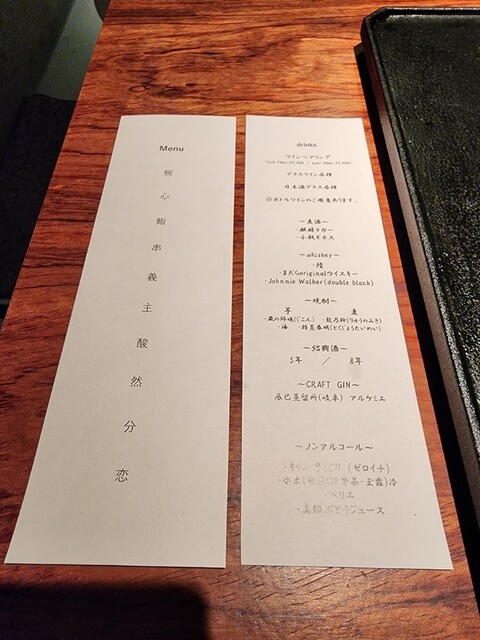 Menu
椀
心
鮨
串
義
主
酸
然
分
恋
drinks
ワインペアリング
グラスワイン各種
日本酒グラス各種
◎ボトルワインのご用意あります。
〜麦酒〜
・麒麟ラガー
・小瓶ギネス
〜whiskey〜
・陸
・まだらoriginalウイスキー
・Johnnie Walker(double black)
〜焼酎〜
芋 麦
・蔵の師魂(じこん) ・龍乃粋(りゅうのみき)
・海 ・特蒸泰明(とくじょうたいめい)
〜紹興酒〜
5年 / 8年
〜CRAFT GIN〜
辰巳蒸留所(岐阜) アルケミエ
〜ノンアルコール〜
・キリン (ゼロイチ)
・水出し 茶・玉露)冷
・ペリエ
・高級ぶどうジュース